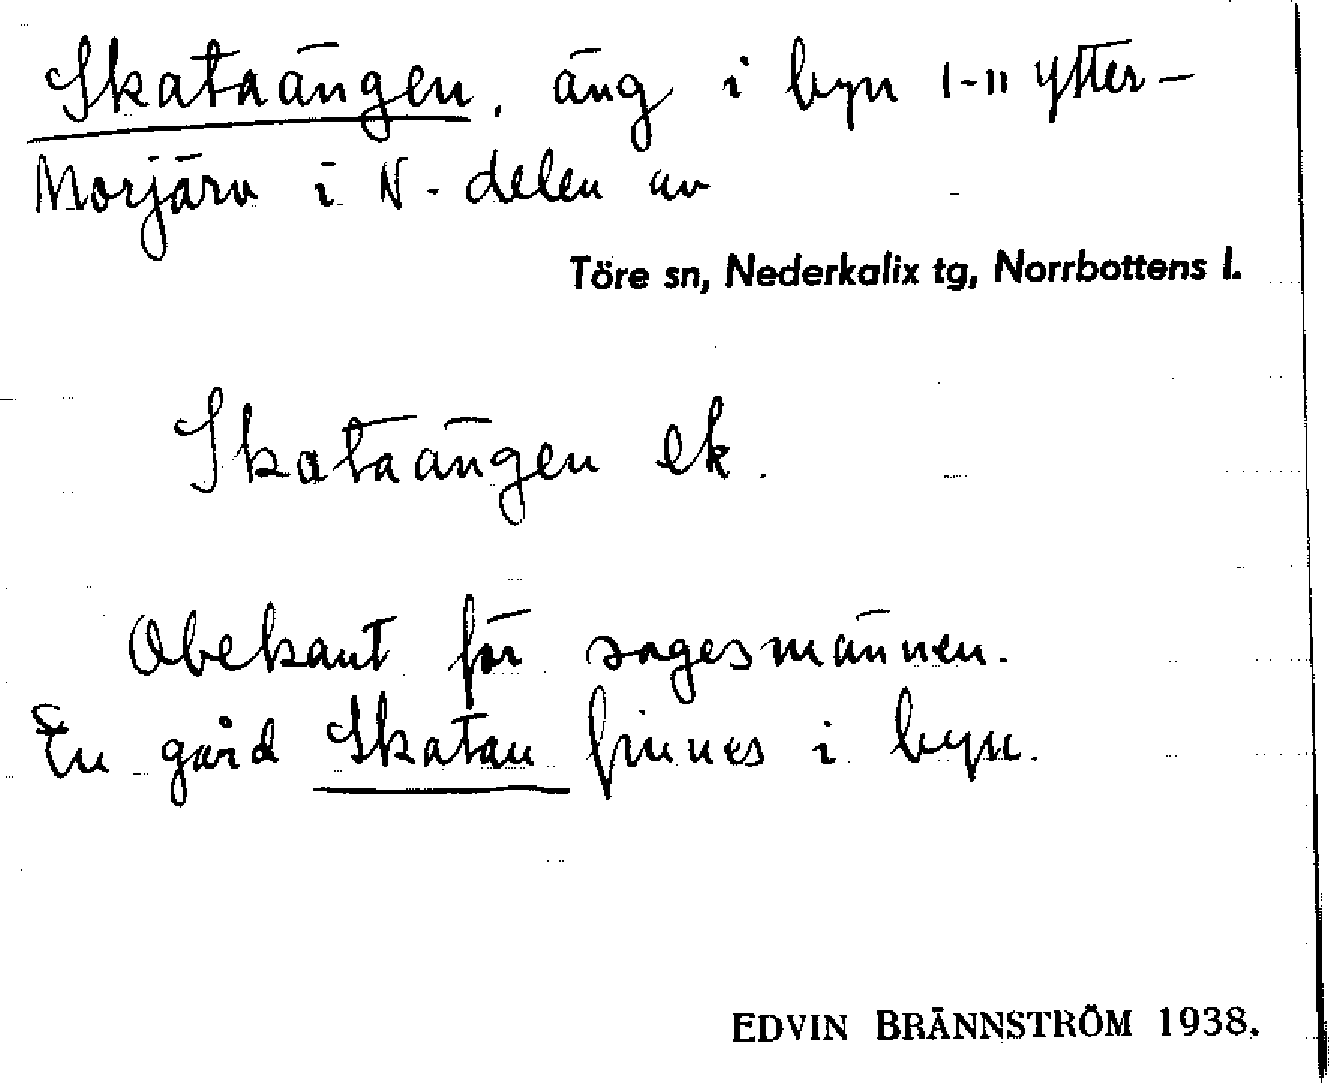 Skataängen, äng i byn 1-11 Ytter-
Morjärv i N-delen av
Töre sn, Nederkalix tg, Norrbottens l.
Skataängen ek.
Obekant för sagesmännen.
En gård Skatan finnes i byn.
EDVIN BRÄNNSTRÖM 1938.